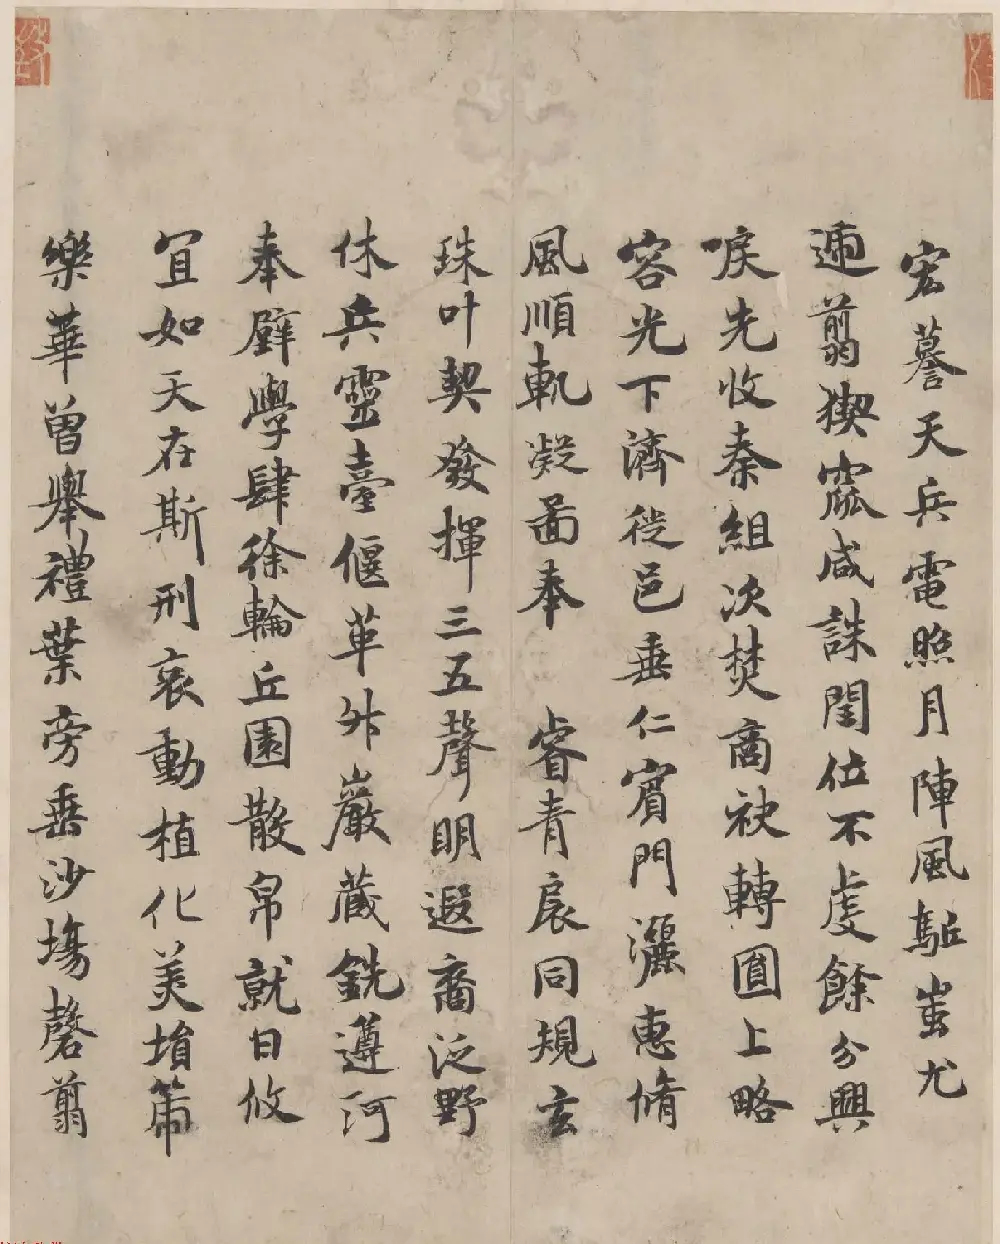 宏謩天兵電照月陣風駈蚩尤
逋翦猰窳咸誅閏位不虔餘分興
唳先收秦組次焚商袂轉圓上略
容光下濟徙邑垂仁賓門灑惠脩
風順軌凝圖奉睿青扆同規玄
珠叶契發揮三五聲明遐裔泛野
休兵靈臺偃革舛巖藏銑遵河
奉璧學肆徐輪丘園散帛就日攸
宜如天在斯刑哀動植化美堉箾
樂華曽舉禮葉旁垂沙塲罄翦